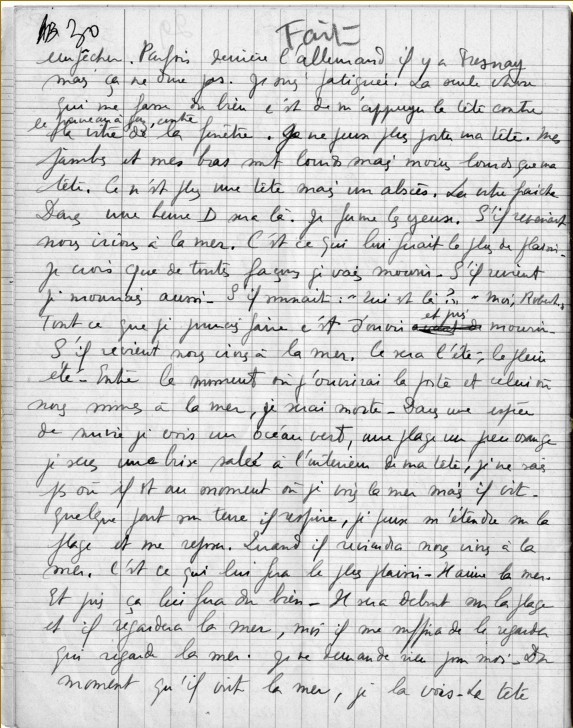 AB 30
Fait
empêcher. Parfois derrière l'allemand il y a Fresnay
mais ça ne dure pas. Je suis fatiguée. La seule chose
qui me fasse du bien c'est de m'appuyer la tête contre
le fourneau à gaz, contre
la vitre de la fenêtre. Je ne peux plus porter ma tête. Mes
jambes et mes bras sont lourds mais moins lourds que ma
tête. Ce n'est plus une tête mais un abcès. La vitre fraîche
Dans une heure D sera là. Je ferme les yeux. S'il revenait
nous irions à la mer. C'est ce qui lui ferait le plus de plaisir.
Je crois que de toutes façons je vais mourir - S'il revient
je mourrais aussi - S'il sonnait : "Qui est là ?" "Moi, Robert",
et puis
Tout ce que je pourrais faire c'est d'ouvrir mourir -
S'il revient nous irons à la mer. Ce sera l'été, le plein
été - Entre le moment où j'ouvrirai la porte et celui où
nous serons à la mer, je serai morte - Dans une espèce
de survie je vois un océan vert, une plage un peu orange
je sens une brise salée à l'intérieur de ma tête, je ne sais
pas où il est au moment où je vois la mer mais il vit -
quelque part sur terre il respire, je peux m'étendre sur la
plage et me reposer. Quand il reviendra nous irons à la
mer. C'est ce qui lui fera le plus plaisir - Il aime la mer.
Et puis ça lui fera du bien - Il sera debout sur la plage
et il regardera la mer, moi il me suffira de le regarder
qui regarde la mer. Je ne demande rien pour moi - Du
moment qu'il voit la mer, je la vois - La tête